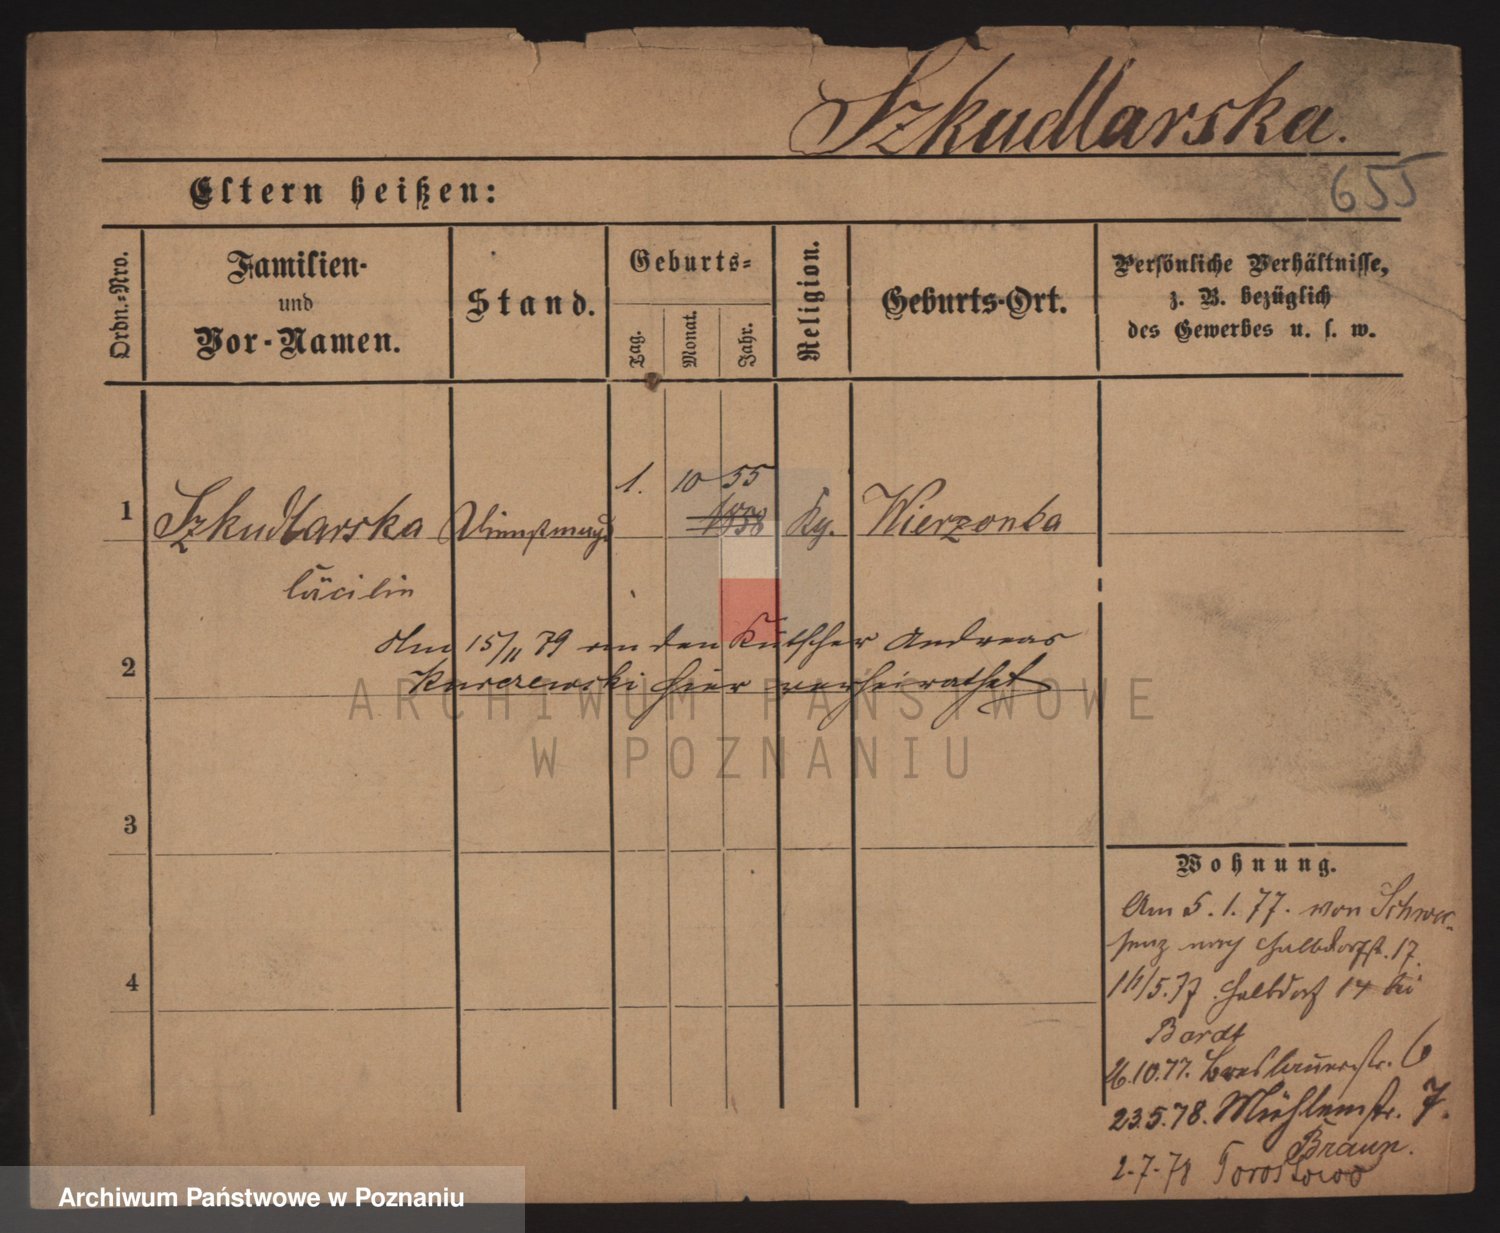 Szkudlarska.
655
Eltern heißen:
Ordn.=Nro.
Familien-
und
Vor-Namen.
Stand.
Geburts=
Tag.
Monat.
Jahr.
Religion.
Geburts-Ort.
Persönliche Verhältnisse,
z. B. bezüglich
des Gewerbes u. s. w.
1. 10 55
1 Szkudlarska Dienstmagd 1858 Kg. Wierzonka
Cäcilie
Am 15/11 79 an den Kutscher Andreas
2
Kurczewski hier verheirathet
ARCHIWUM PAŃSTWOWE
W POZNANIU
3
4
Wohnung.
Am 5.1.77. von Schwer-
senz nach Halbdorfst. 17.
16/5.77 Halbdorf 14 bei
Bardt
26.10.77. Breslauerstr. 6
23.5.78. Mühlenstr. 7.
Braun.
2-7-78
Archiwum Państwowe w Poznaniu